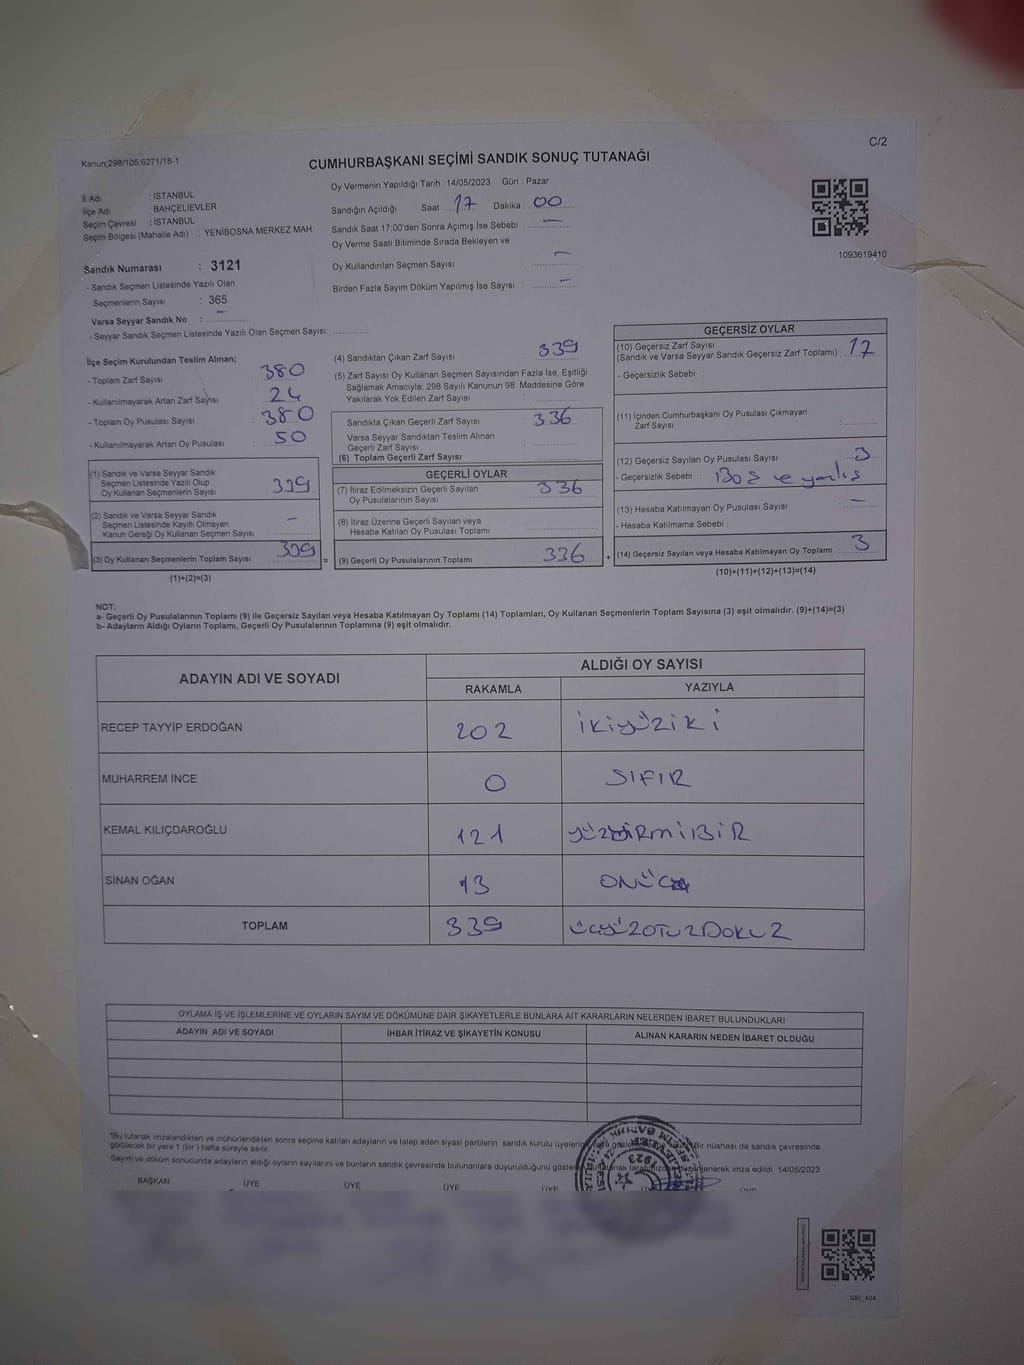 C/2
Kanun;298/105;6271/18-1
CUMHURBAŞKANI SEÇİMİ SANDIK SONUÇ TUTANAĞI
Oy Vermenin Yapıldığı Tarih : 14/05/2023 Gün : Pazar
İl Adı : İSTANBUL
İlçe Adı : BAHÇELİEVLER
Seçim Çevresi : İSTANBUL
Seçim Bölgesi (Mahalle Adı) : YENİBOSNA MERKEZ MAH.
Sandık Numarası : 3121
- Sandık Seçmen Listesinde Yazılı Olan
Seçmenlerin Sayısı : 365
Varsa Seyyar Sandık No : –
- Seyyar Sandık Seçmen Listesinde Yazılı Olan Seçmen Sayısı:
Sandığın Açıldığı Saat : 17 Dakika : 00
Sandık Saat 17:00'den Sonra Açımış İse Sebebi : –
Oy Verme Saati Bitiminde Sırada Bekleyen ve
Oy Kullandırılan Seçmen Sayısı : –
Birden Fazla Sayım Döküm Yapılmış İse Sayısı : –
1093619410
İlçe Seçim Kurulundan Teslim Alınan;
- Toplam Zarf Sayısı : 380
- Kullanılmayarak Artan Zarf Sayısı : 24
- Toplam Oy Pusulası Sayısı : 380
- Kullanılmayarak Artan Oy Pusulası : 50
(1) Sandık ve Varsa Seyyar Sandık
Seçmen Listesinde Yazılı Olup
Oy Kullanan Seçmenlerin Sayısı : 339
(2) Sandık ve Varsa Seyyar Sandık
Seçmen Listesinde Kayıtlı Olmayan
Kanun Gereği Oy Kullanan Seçmen Sayısı : –
(3) Oy Kullanan Seçmenlerin Toplam Sayısı : 339
(1)+(2)=(3)
(4) Sandıktan Çıkan Zarf Sayısı : 339
(5) Zarf Sayısı Oy Kullanan Seçmen Sayısından Fazla İse, Eşitliği
Sağlamak Amacıyla, 298 Sayılı Kanunun 98. Maddesine Göre
Yakılarak Yok Edilen Zarf Sayısı :
Sandıkta Çıkan Geçerli Zarf Sayısı : 336
Varsa Seyyar Sandıktan Teslim Alınan
Geçerli Zarf Sayısı :
(6) Toplam Geçerli Zarf Sayısı
GEÇERLİ OYLAR
(7) İtiraz Edilmeksizin Geçerli Sayılan
Oy Pusulalarının Sayısı : 336
(8) İtiraz Üzerine Geçerli Sayılan veya
Hesaba Katılan Oy Pusulası Toplamı :
= (9) Geçerli Oy Pusulalarının Toplamı : 336 +
GEÇERSİZ OYLAR
(10) Geçersiz Zarf Sayısı
(Sandık ve Varsa Seyyar Sandık Geçersiz Zarf Toplamı) : 17
- Geçersizlik Sebebi :
(11) İçinden Cumhurbaşkanı Oy Pusulası Çıkmayan
Zarf Sayısı :
(12) Geçersiz Sayılan Oy Pusulası Sayısı : 3
- Geçersizlik Sebebi : Boş ve yanlış
(13) Hesaba Katılmayan Oy Pusulası Sayısı : –
- Hesaba Katılmama Sebebi :
(14) Geçersiz Sayılan veya Hesaba Katılmayan Oy Toplamı : 3
(10)+(11)+(12)+(13)=(14)
NOT:
a- Geçerli Oy Pusulalarının Toplamı (9) ile Geçersiz Sayılan veya Hesaba Katılmayan Oy Toplamı (14) Toplamları, Oy Kullanan Seçmenlerin Toplam Sayısına (3) eşit olmalıdır. (9)+(14)=(3)
b- Adayların Aldığı Oyların Toplamı, Geçerli Oy Pusulalarının Toplamına (9) eşit olmalıdır.
ADAYIN ADI VE SOYADI ALDIĞI OY SAYISI
RAKAMLA YAZIYLA
RECEP TAYYİP ERDOĞAN 202 İKİYÜZİKİ
MUHARREM İNCE 0 SIFIR
KEMAL KILIÇDAROĞLU 121 YÜZYİRMİBİR
SİNAN OĞAN 13 ONÜÇ
TOPLAM 339 ÜÇYÜZOTUZDOKUZ
OYLAMA İŞ VE İŞLEMLERİNE VE OYLARIN SAYIM VE DÖKÜMÜNE DAİR ŞİKAYETLERLE BUNLARA AİT KARARLARIN NELERDEN İBARET BULUNDUKLARI
ADAYIN ADI VE SOYADI İHBAR İTİRAZ VE ŞİKAYETİN KONUSU ALINAN KARARIN NEDEN İBARET OLDUĞU
*Bu tutanak imzalandıktan ve mühürlendikten sonra seçime katılan adayların ve talep eden siyasi partilerin sandık kurulu üyelerine Bir nüshası da sandık çevresinde
görülecek bir yere 1 (bir) hafta süreyle asılır.
Sayım ve döküm sonucunda adayların aldığı oyların sayılarını ve bunların sandık çevresinde bulunanlara duyurulduğunu gösteren tutanak tarafımızca düzenlenerek imza edildi. 14/05/2023
BAŞKAN ÜYE ÜYE ÜYE ÜYE ÜYE
SSİ_404